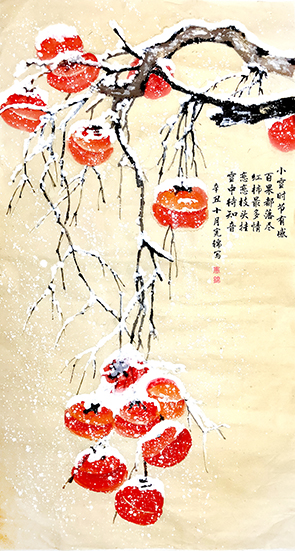 小雪时节有感
百果都落尽
红柿最多情
恋恋枝头挂
雪中待知音
辛丑十月完锦写